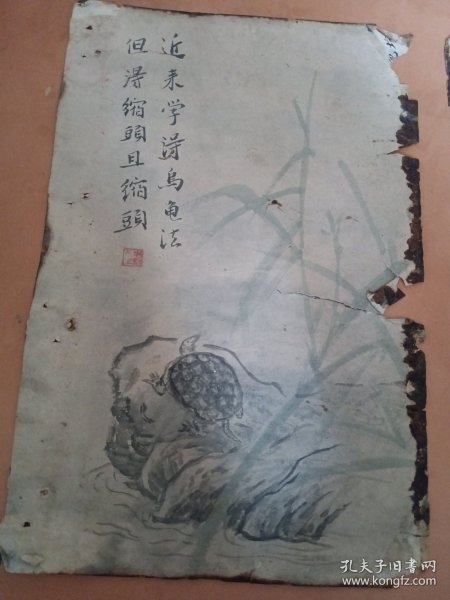 近来学得乌龟法
但得缩頭且缩頭
孔夫子旧书网
www.kongfz.com